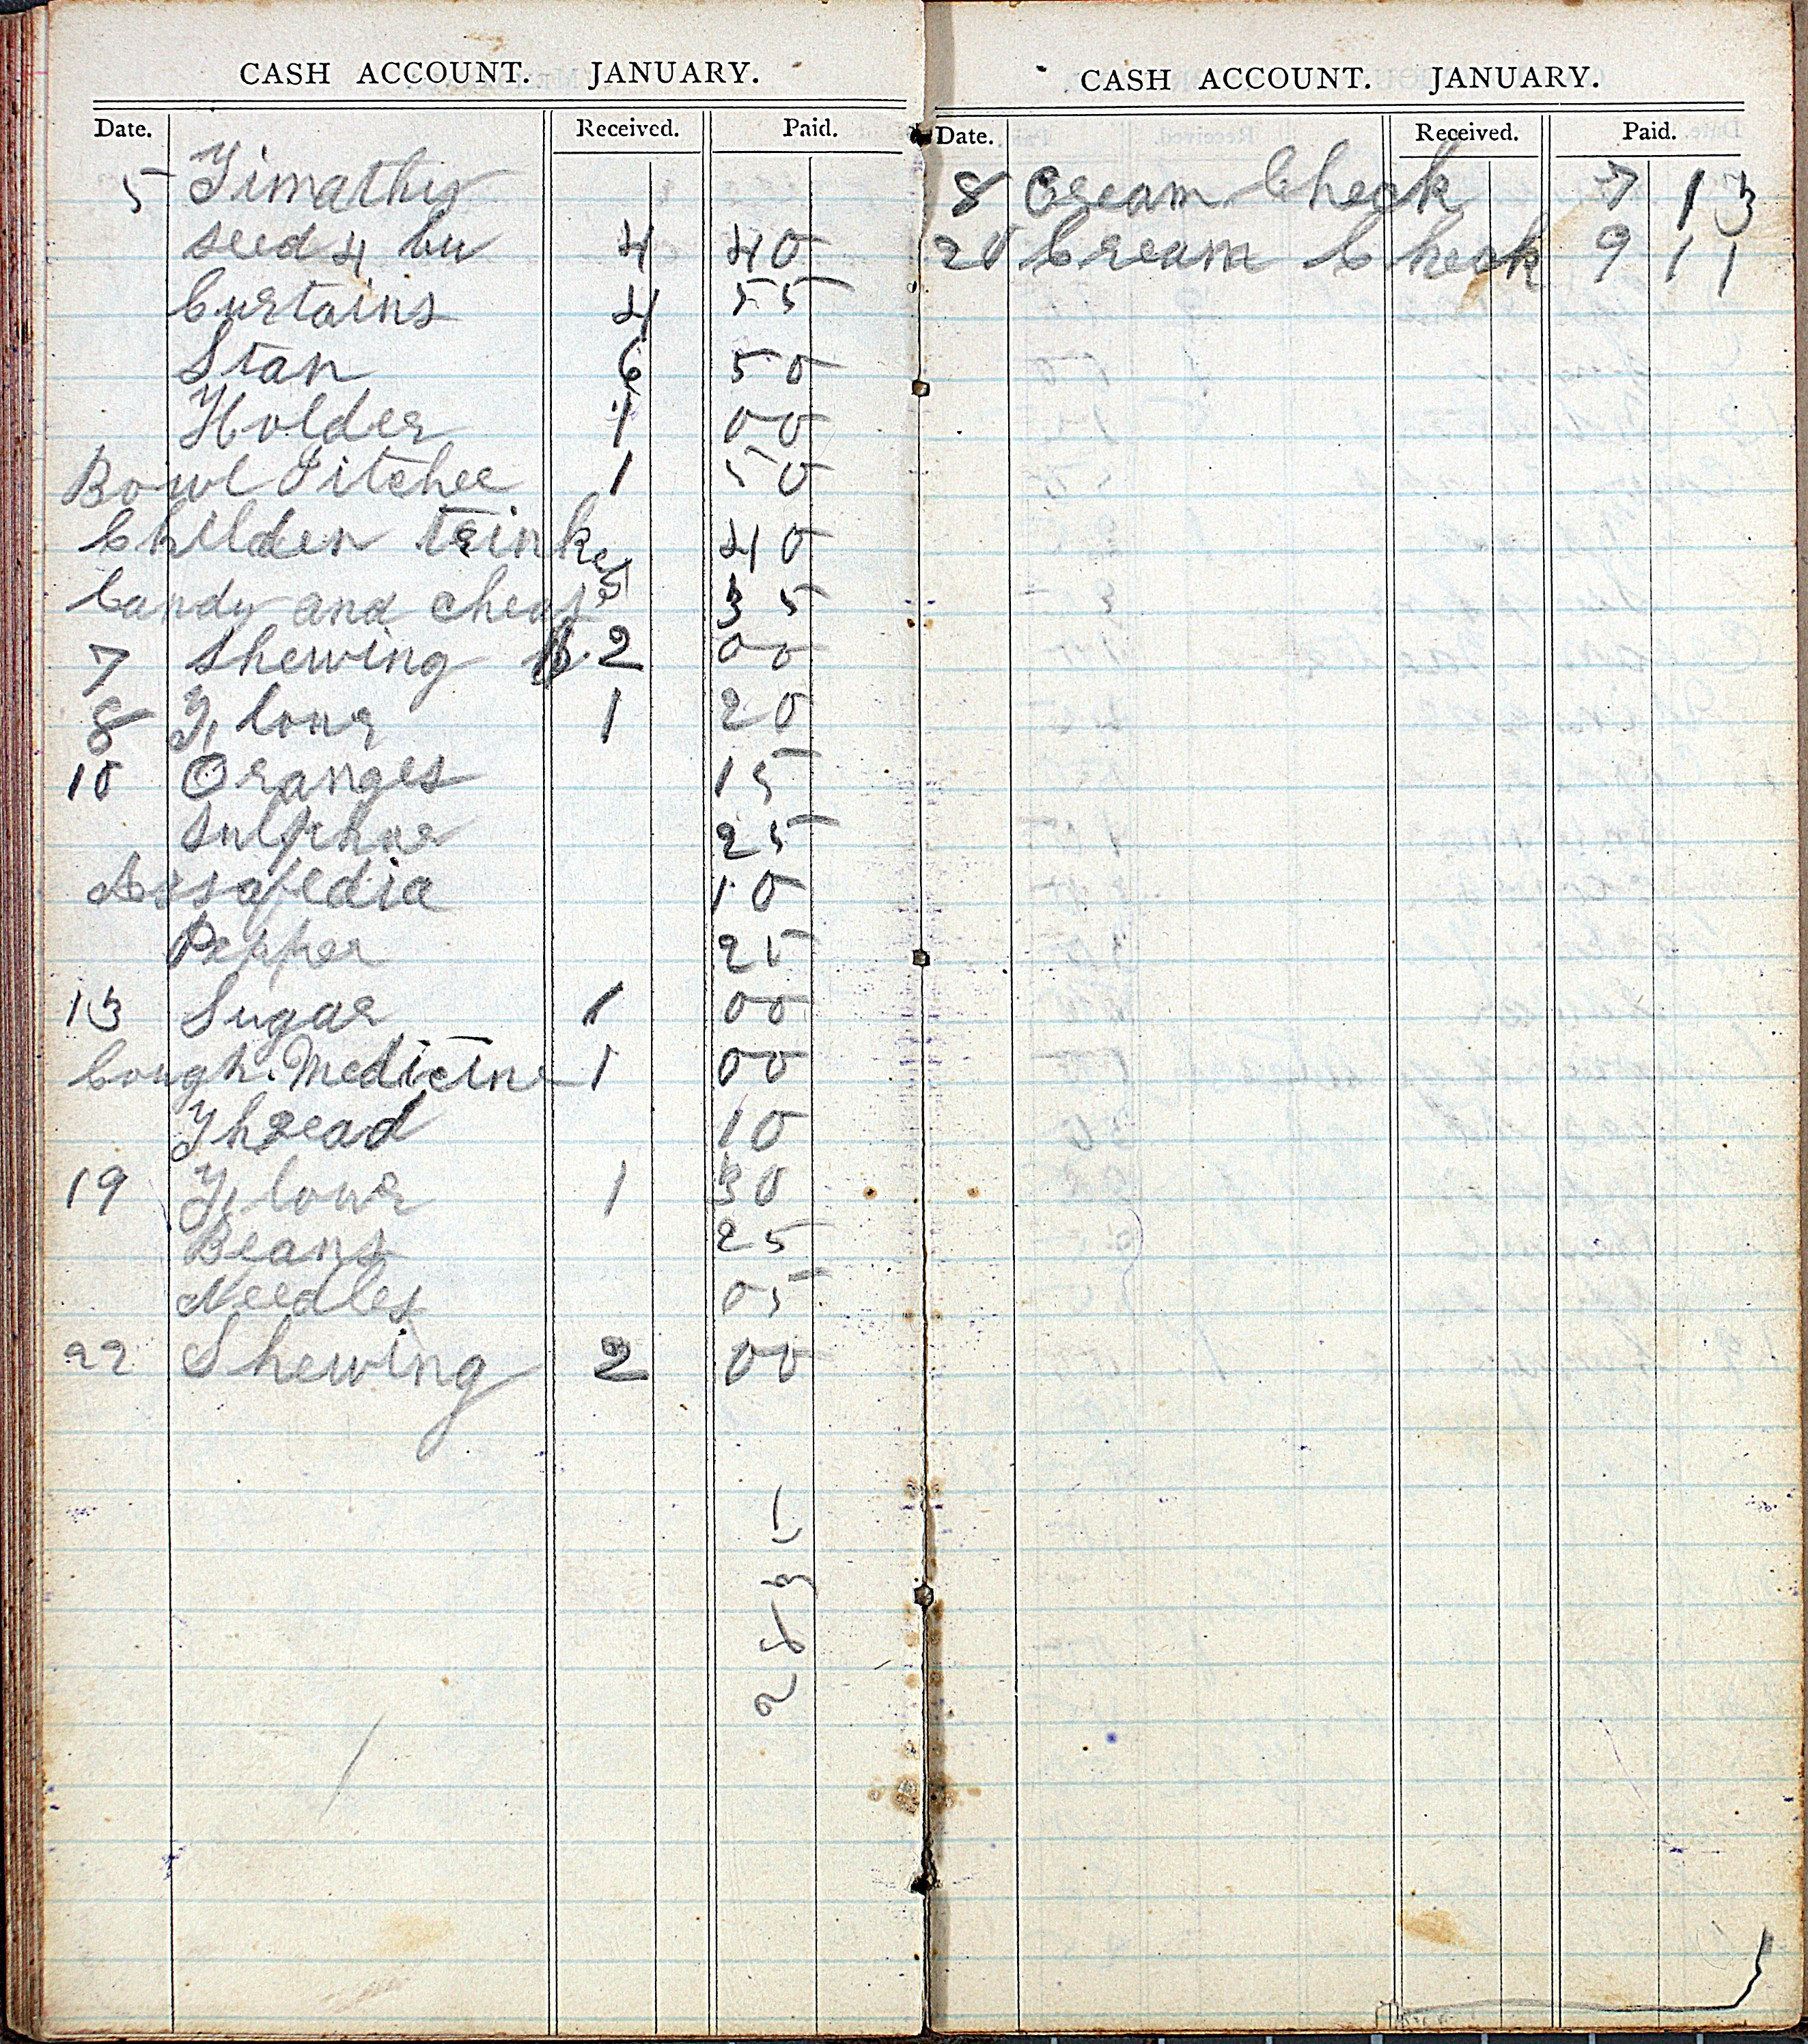 CASH ACCOUNT. JANUARY.
Date. Received. Paid.
5 Timathy
seed 4 bu 4 40
Curtains 4 55
Stan 6 50
Holder 1 00
Bowl Pitcher 1 50
Childen trinkest 40
Candy and cheas 35
7 Shewing 2 00
8 Flour 1 20
10 Oranges 15
Sulphur 25
Assafedia 10
Pepper 25
13 Sugar 1 00
Cough Medicine 1 00
Thread 10
19 Flour 1 30
Beans 25
Needles 05
22 Shewing 2 00
CASH ACCOUNT. JANUARY.
Date. Received. Paid.
8 Cream Check 7 13
20 Cream Check 9 11